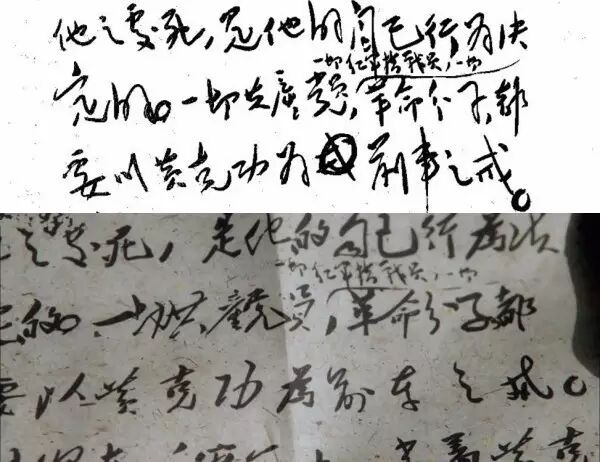 他之處死，是他的自己行为决
一切红军指战员，一切
定的。一切共產党员，革命分子，都
要以黄克功为前車之戒。
之處死，是他的自己行為决
一切红军指战员，一切
定的。一切共產党員，革命分子都
要以黄克功為前车之戒。
黄克